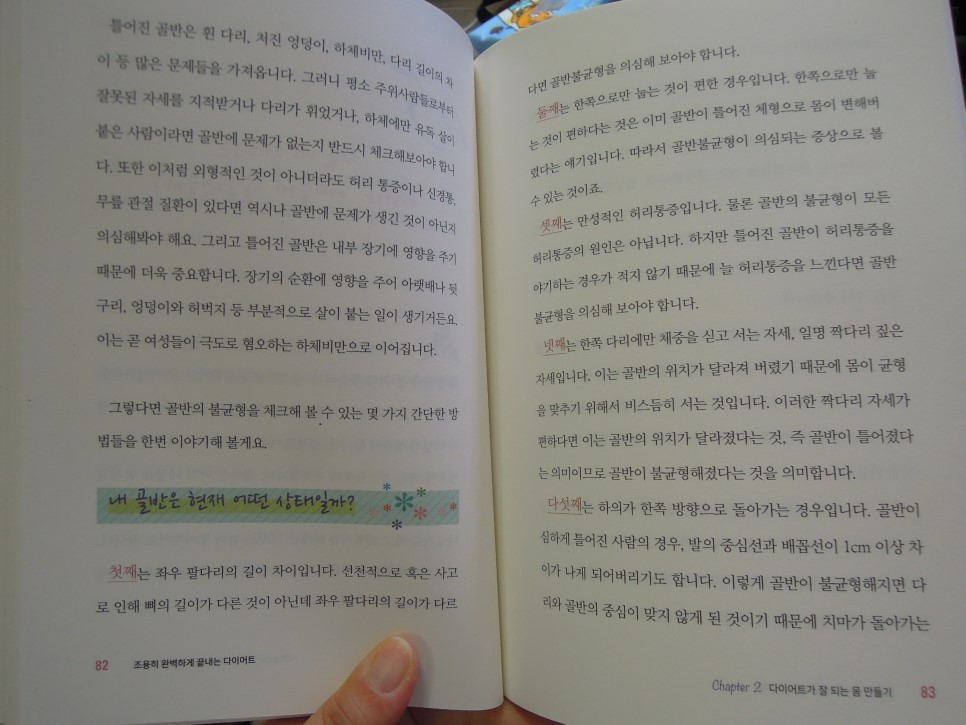 틀어진 골반은 휜 다리, 처진 엉덩이, 하체비만, 다리 길이의 차
이 등 많은 문제들을 가져옵니다. 그러니 평소 주위사람들로부터
잘못된 자세를 지적받거나 다리가 휘었거나, 하체에만 유독 살이
붙은 사람이라면 골반에 문제가 없는지 반드시 체크해보아야 합니
다. 또한 이처럼 외형적인 것이 아니더라도 허리 통증이나 신경통,
무릎 관절 질환이 있다면 역시나 골반에 문제가 생긴 것이 아닌지
의심해봐야 해요. 그리고 틀어진 골반은 내부 장기에 영향을 주기
때문에 더욱 중요합니다. 장기의 순환에 영향을 주어 아랫배나 뒷
구리, 엉덩이와 허벅지 등 부분적으로 살이 붙는 일이 생기거든요.
이는 곧 여성들이 극도로 혐오하는 하체비만으로 이어집니다.
그렇다면 골반의 불균형을 체크해 볼 수 있는 몇 가지 간단한 방
법들을 한번 이야기해 볼게요.
내 골반은 현재 어떤 상태일까?
첫째는 좌우 팔다리의 길이 차이입니다. 선천적으로 혹은 사고
로 인해 뼈의 길이가 다른 것이 아닌데 좌우 팔다리의 길이가 다르
82 조용히 완벽하게 끝내는 다이어트
다면 골반불균형을 의심해 보아야 합니다.
둘째는 한쪽으로만 눕는 것이 편한 경우입니다. 한쪽으로만 눕
는 것이 편하다는 것은 이미 골반이 틀어진 체형으로 몸이 변해버
렸다는 얘기입니다. 따라서 골반불균형이 의심되는 증상으로 볼
수 있는 것이죠.
셋째는 만성적인 허리통증입니다. 물론 골반의 불균형이 모든
허리통증의 원인은 아닙니다. 하지만 틀어진 골반이 허리통증을
야기하는 경우가 적지 않기 때문에 늘 허리통증을 느낀다면 골반
불균형을 의심해 보아야 합니다.
넷째는 한쪽 다리에만 체중을 싣고 서는 자세, 일명 짝다리 짚은
자세입니다. 이는 골반의 위치가 달라져 버렸기 때문에 몸이 균형
을 맞추기 위해서 비스듬히 서는 것입니다. 이러한 짝다리 자세가
편하다면 이는 골반의 위치가 달라졌다는 것, 즉 골반이 틀어졌다
는 의미이므로 골반이 불균형해졌다는 것을 의미합니다.
다섯째는 하의가 한쪽 방향으로 돌아가는 경우입니다. 골반이
심하게 틀어진 사람의 경우, 발의 중심선과 배꼽선이 1cm 이상 차
이가 나게 되어버리기도 합니다. 이렇게 골반이 불균형해지면 다
리와 골반의 중심이 맞지 않게 된 것이기 때문에 치마가 돌아가는
Chapter 2 다이어트가 잘 되는 몸 만들기 83